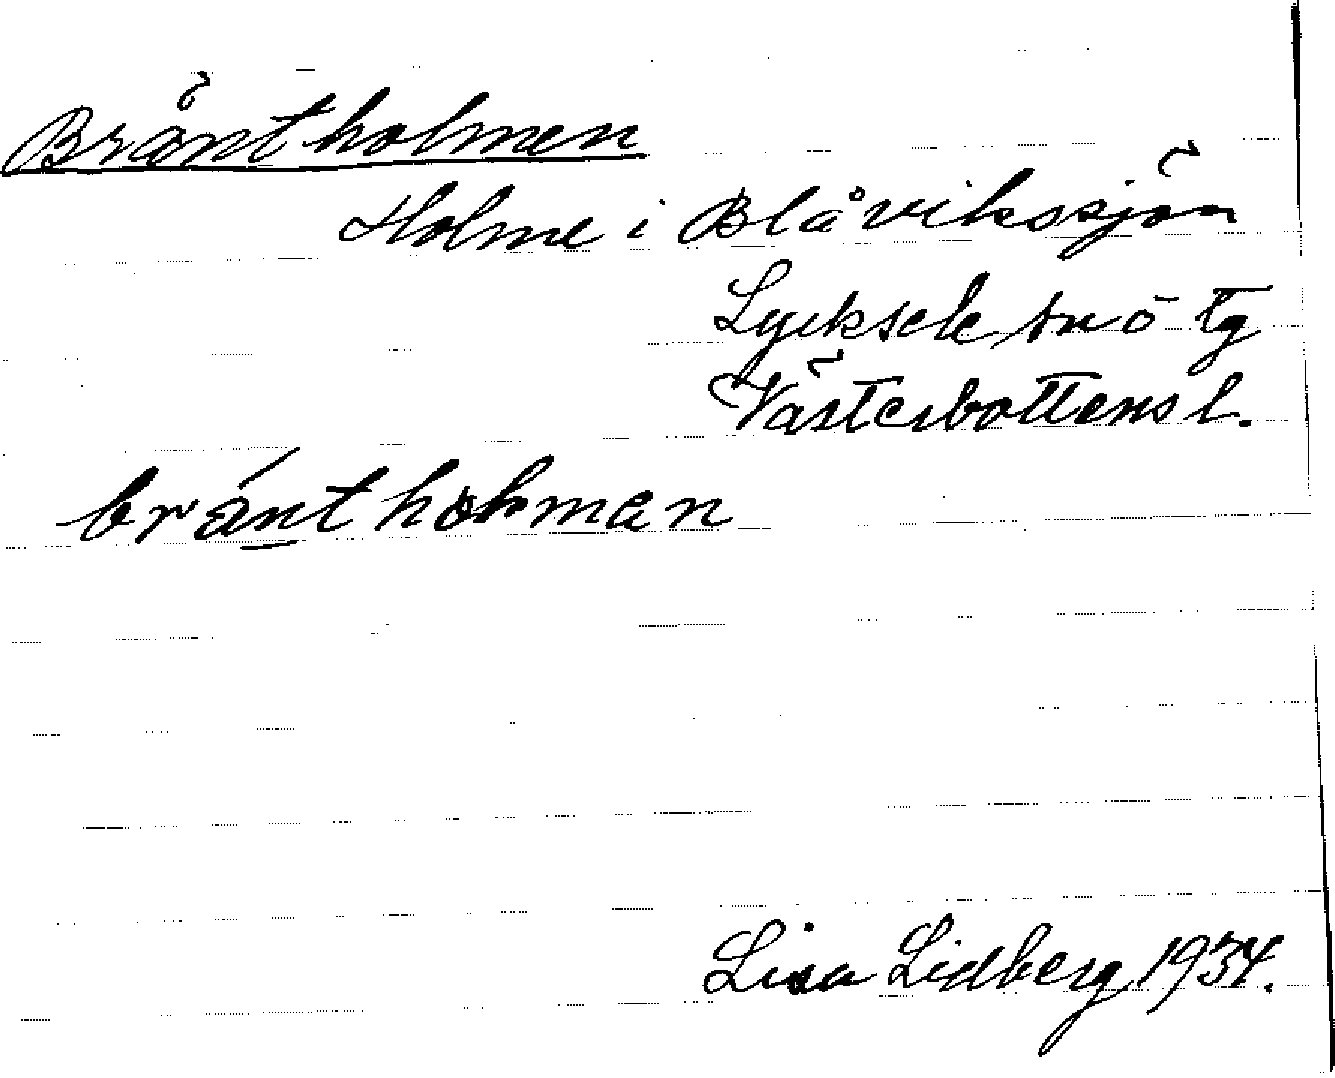 Bräntholmen
Holme i Blåvikssjön
Lycksele sn o tg
Västerbottens l.
bránthohmen
Lisa Lidberg 1934.